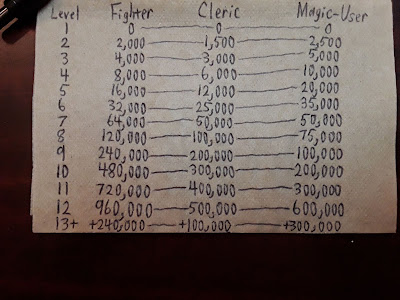 Level Fighter Cleric Magic-User
1 0 0 0
2 2,000 1,500 2,500
3 4,000 3,000 5,000
4 8,000 6,000 10,000
5 16,000 12,000 20,000
6 32,000 25,000 35,000
7 64,000 50,000 50,000
8 120,000 100,000 75,000
9 240,000 200,000 100,000
10 480,000 300,000 200,000
11 720,000 400,000 300,000
12 960,000 500,000 600,000
13+ +240,000 +100,000 +300,000